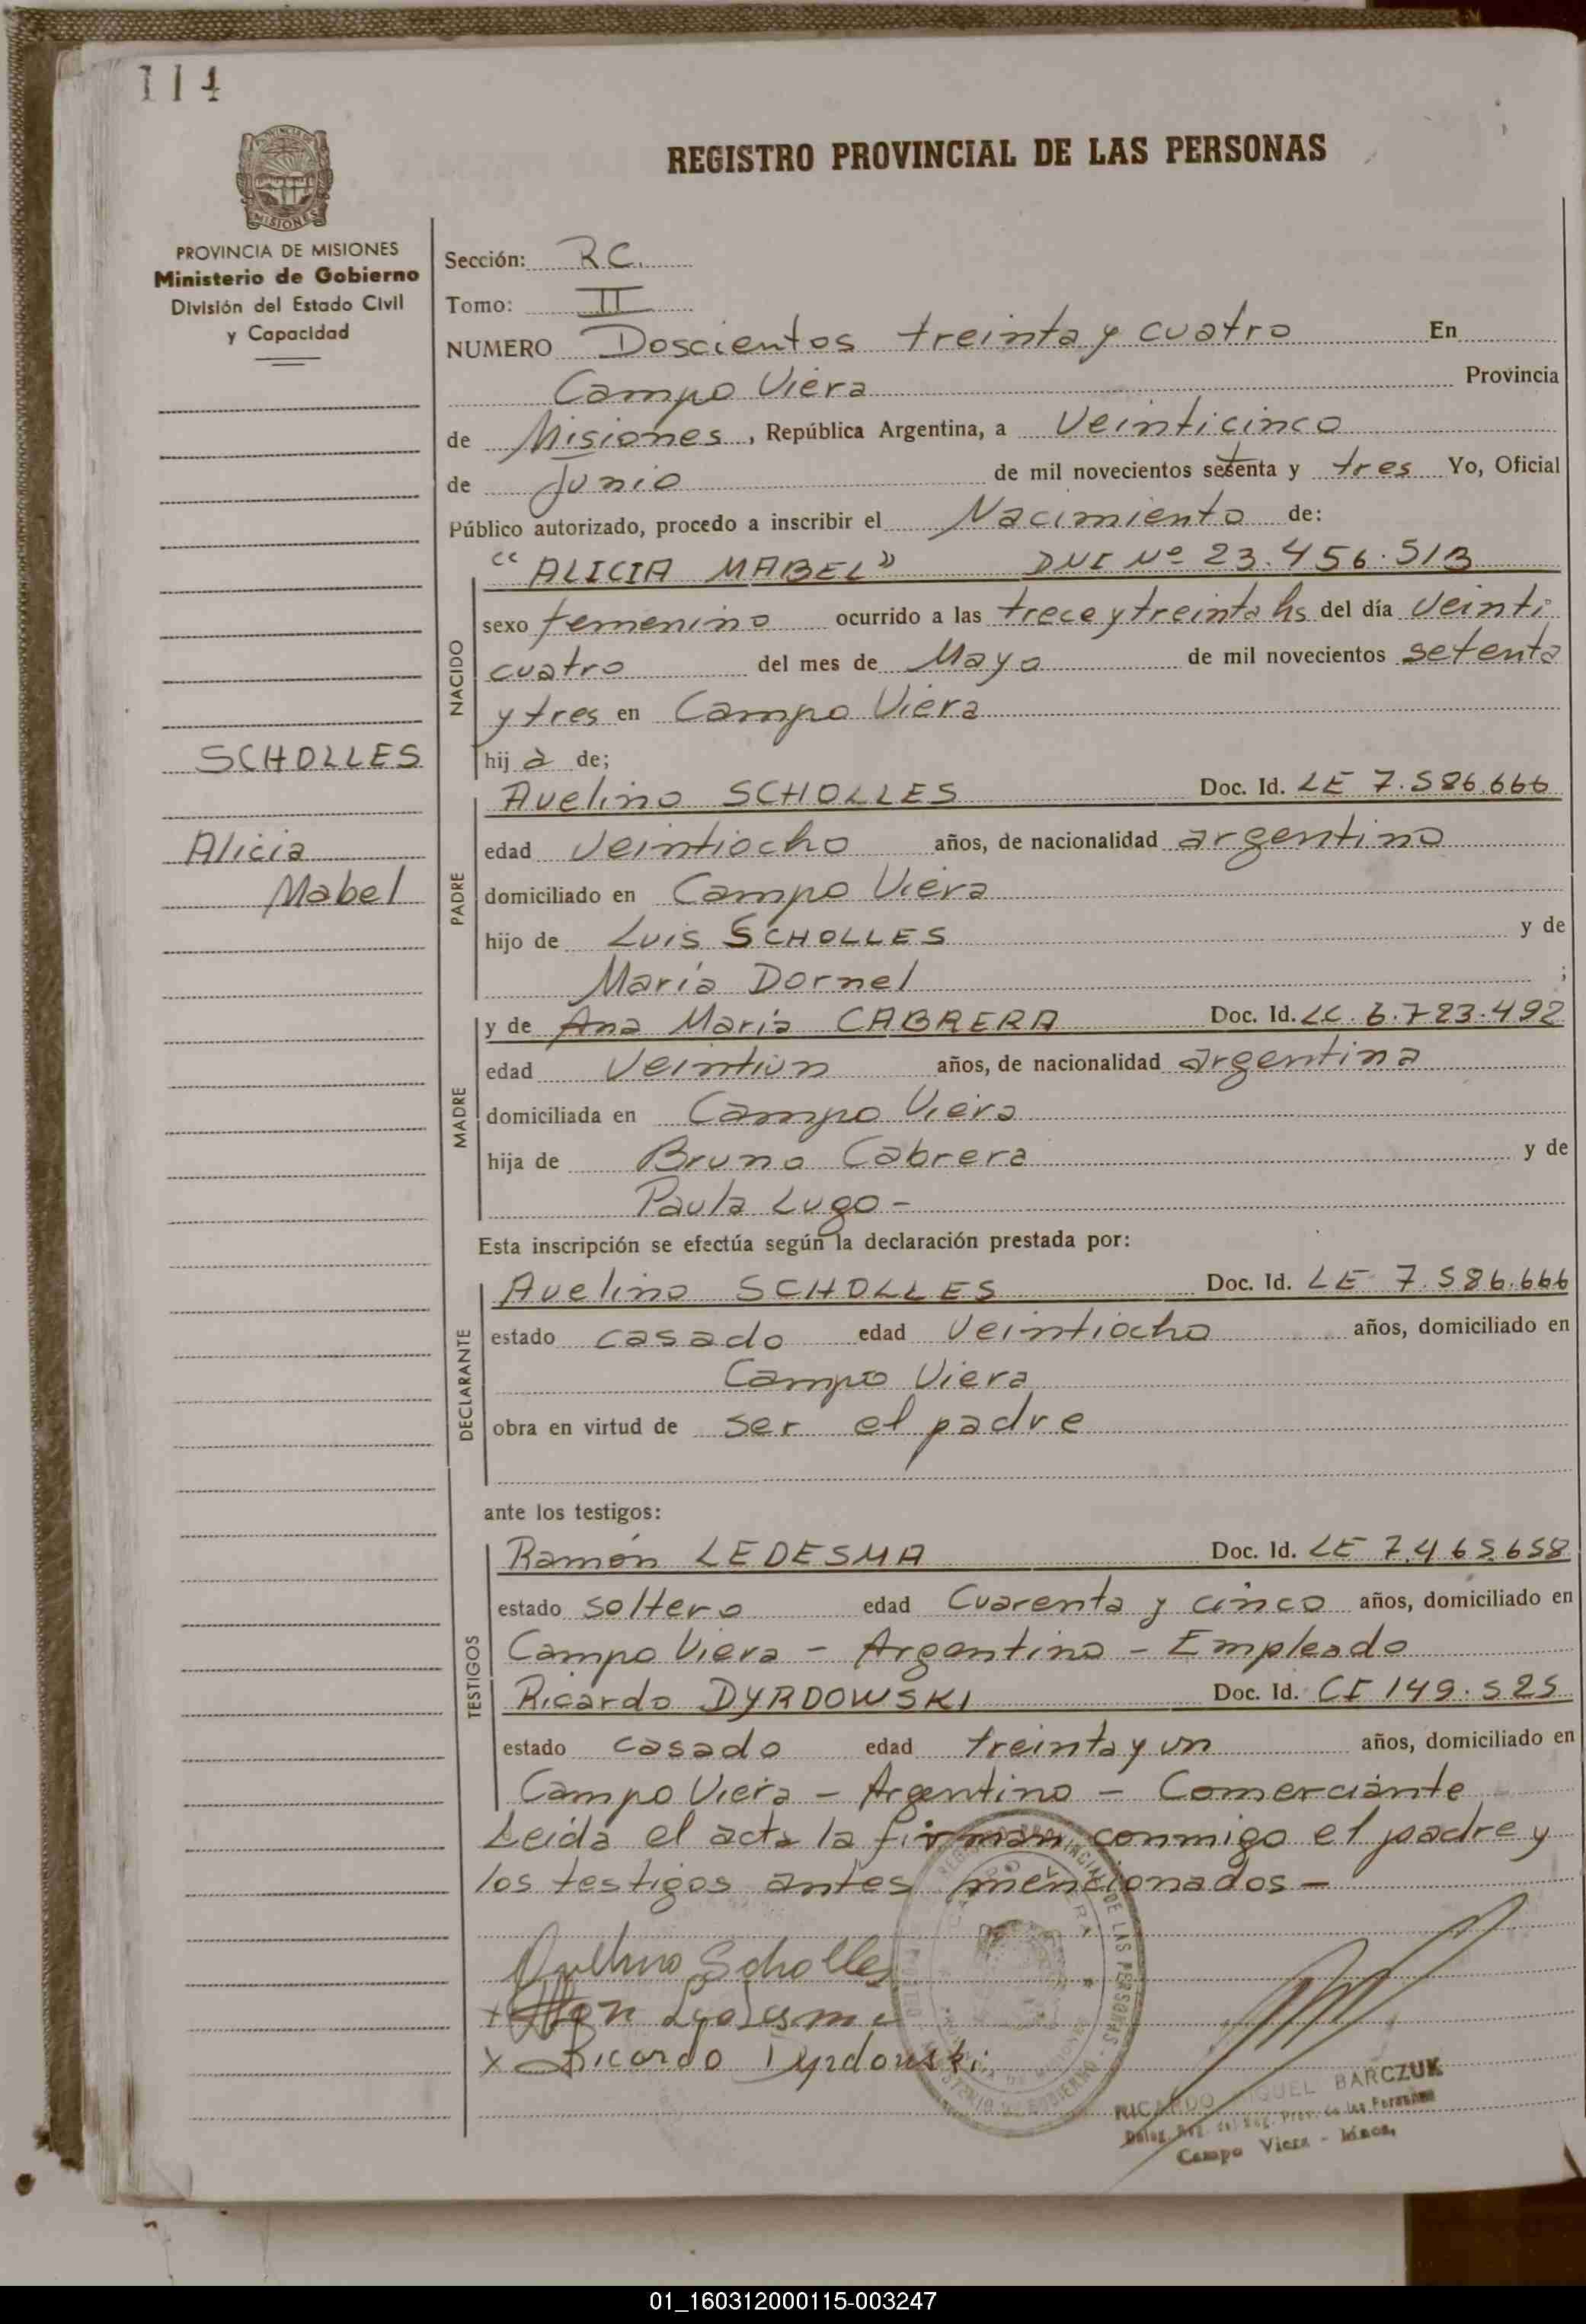 114
REGISTRO PROVINCIAL DE LAS PERSONAS
MISIONES
PROVINCIA DE MISIONES
Ministerio de Gobierno
División del Estado Civil
y Capacidad
SCHOLLES
Alicia
Mabel
Sección: RC.
Tomo: II
NUMERO Doscientos treinta y cuatro En
Campo Viera Provincia
de Misiones, República Argentina, a Veinticinco
de Junio de mil novecientos setenta y tres Yo, Oficial
Público autorizado, procedo a inscribir el Nacimiento de:
"ALICIA MABEL" DNI Nº 23.456.513
NACIDO
sexo femenino ocurrido a las trece y treinta hs del día Veinti
cuatro del mes de Mayo de mil novecientos setenta
y tres en Campo Viera
hij a de;
PADRE
Avelino SCHOLLES Doc. Id. LE 7.586.666
edad Veintiocho años, de nacionalidad argentino
domiciliado en Campo Viera
hijo de Luis SCHOLLES y de
María Dornel ;
MADRE
y de Ana María CABRERA Doc. Id. LC. 6.723.492
edad Veintiun años, de nacionalidad argentina
domiciliada en Campo Viera
hija de Bruno Cabrera y de
Paula Lugo -
Esta inscripción se efectúa según la declaración prestada por:
DECLARANTE
Avelino SCHOLLES Doc. Id. LE 7.586.666
estado casado edad Veintiocho años, domiciliado en
Campo Viera
obra en virtud de ser el padre
ante los testigos:
TESTIGOS
Ramón LEDESMA Doc. Id. LE 7.465.658
estado soltero edad Cuarenta y cinco años, domiciliado en
Campo Viera - Argentino - Empleado
Ricardo DYRDOWSKI Doc. Id. CI 149.525
estado casado edad treinta y un años, domiciliado en
Campo Viera - Argentino - Comerciante
Leída el acta la firman conmigo el padre y
los testigos antes mencionados -
Scholles
x Ricardo Dyrdowski
RICARDO MIGUEL BARCZUK
Campo Viera - Mnes.
01_160312000115-003247